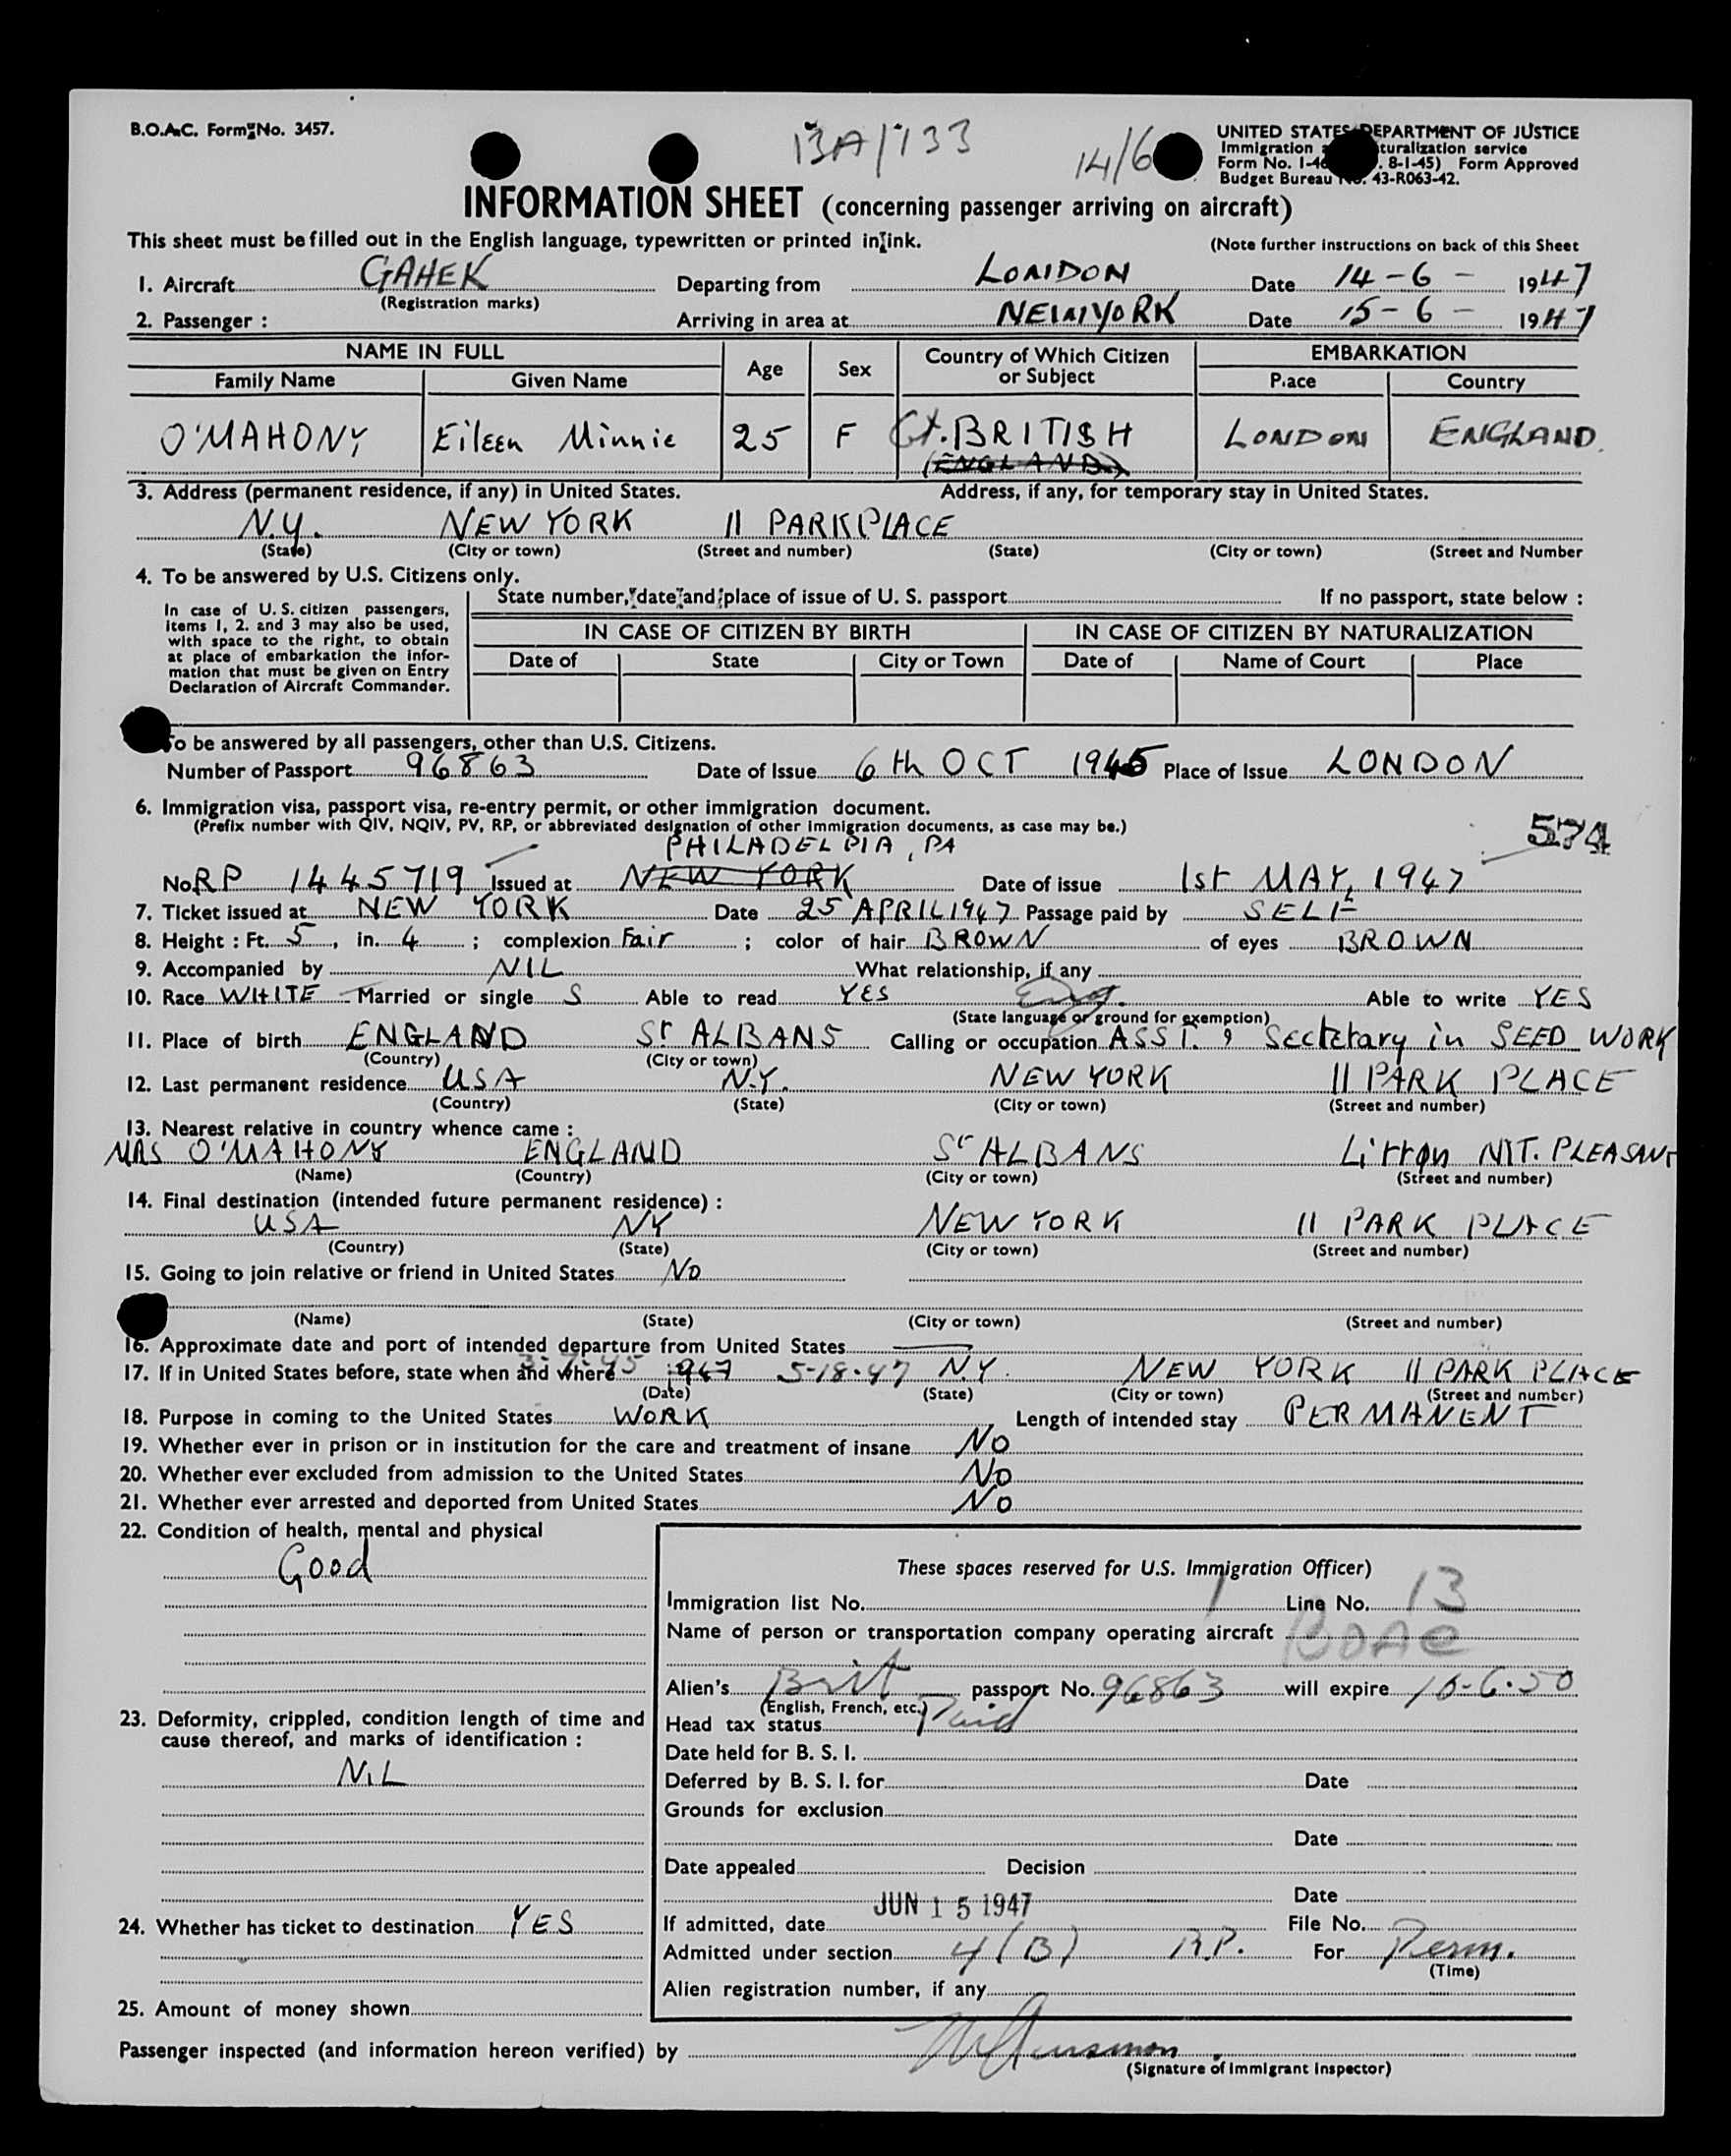 B.O.A.C. Form No. 3457.
BA/133
14/6
UNITED STATES DEPARTMENT OF JUSTICE
Immigration turalization service
Form No. I-4 . 8-1-45) Form Approved
Budget Bureau No. 43-R063-42.
INFORMATION SHEET (concerning passenger arriving on aircraft)
This sheet must be filled out in the English language, typewritten or printed in ink.
(Note further instructions on back of this Sheet
1. Aircraft GAHEK Departing from LONDON Date 14-6- 1947
(Registration marks)
2. Passenger : Arriving in area at NEW YORK Date 15-6- 1947
NAME IN FULL Age Sex Country of Which Citizen or Subject EMBARKATION
Family Name Given Name Place Country
O'MAHONY Eileen Minnie 25 F Gt. BRITISH LONDON ENGLAND.
(ENGLAND)
3. Address (permanent residence, if any) in United States. Address, if any, for temporary stay in United States.
N.Y. NEW YORK 11 PARK PLACE
(State) (City or town) (Street and number) (State) (City or town) (Street and Number
4. To be answered by U.S. Citizens only.
In case of U. S. citizen passengers,
items 1, 2. and 3 may also be used,
with space to the right, to obtain
at place of embarkation the infor-
mation that must be given on Entry
Declaration of Aircraft Commander.
State number, date and place of issue of U. S. passport If no passport, state below :
IN CASE OF CITIZEN BY BIRTH IN CASE OF CITIZEN BY NATURALIZATION
Date of State City or Town Date of Name of Court Place
To be answered by all passengers, other than U.S. Citizens.
Number of Passport 96863 Date of Issue 6th OCT 1945 Place of Issue LONDON
6. Immigration visa, passport visa, re-entry permit, or other immigration document.
(Prefix number with QIV, NQIV, PV, RP, or abbreviated designation of other immigration documents, as case may be.)
574
PHILADELPIA, PA
No. RP 1445719 Issued at NEW YORK Date of issue 1st MAY, 1947
7. Ticket issued at NEW YORK Date 25 APRIL 1947 Passage paid by SELF
8. Height : Ft. 5, in. 4 ; complexion Fair ; color of hair BROWN of eyes BROWN
9. Accompanied by NIL What relationship, if any
10. Race WHITE Married or single S Able to read YES Eng. Able to write YES
(State language or ground for exemption)
11. Place of birth ENGLAND St ALBANS Calling or occupation ASST. & Secretary in SEED WORK
(Country) (City or town)
12. Last permanent residence USA N.Y. NEW YORK 11 PARK PLACE
(Country) (State) (City or town) (Street and number)
13. Nearest relative in country whence came :
MRS O'MAHONY ENGLAND St ALBANS Litton MT. PLEASANT
(Name) (Country) (City or town) (Street and number)
14. Final destination (intended future permanent residence) :
USA NY NEW YORK 11 PARK PLACE
(Country) (State) (City or town) (Street and number)
15. Going to join relative or friend in United States No
(Name) (State) (City or town) (Street and number)
16. Approximate date and port of intended departure from United States
17. If in United States before, state when and where 3-7-45 1947 5-18-47 N.Y. NEW YORK 11 PARK PLACE
(Date) (State) (City or town) (Street and number)
18. Purpose in coming to the United States WORK Length of intended stay PERMANENT
19. Whether ever in prison or in institution for the care and treatment of insane No
20. Whether ever excluded from admission to the United States No
21. Whether ever arrested and deported from United States No
22. Condition of health, mental and physical
Good
23. Deformity, crippled, condition length of time and
cause thereof, and marks of identification :
NIL
24. Whether has ticket to destination YES
25. Amount of money shown
These spaces reserved for U.S. Immigration Officer)
Immigration list No. 1 Line No. 13
Name of person or transportation company operating aircraft BOAC
Alien's Brit passport No. 96863 will expire 10-6-50
(English, French, etc.)
Head tax status Paid
Date held for B. S. I.
Deferred by B. S. I. for Date
Grounds for exclusion
Date
Date appealed Decision
Date
If admitted, date JUN 15 1947 File No.
Admitted under section 4(B) R.P. For Perm.
(Time)
Alien registration number, if any
Passenger inspected (and information hereon verified) by
(Signature of Immigrant Inspector)